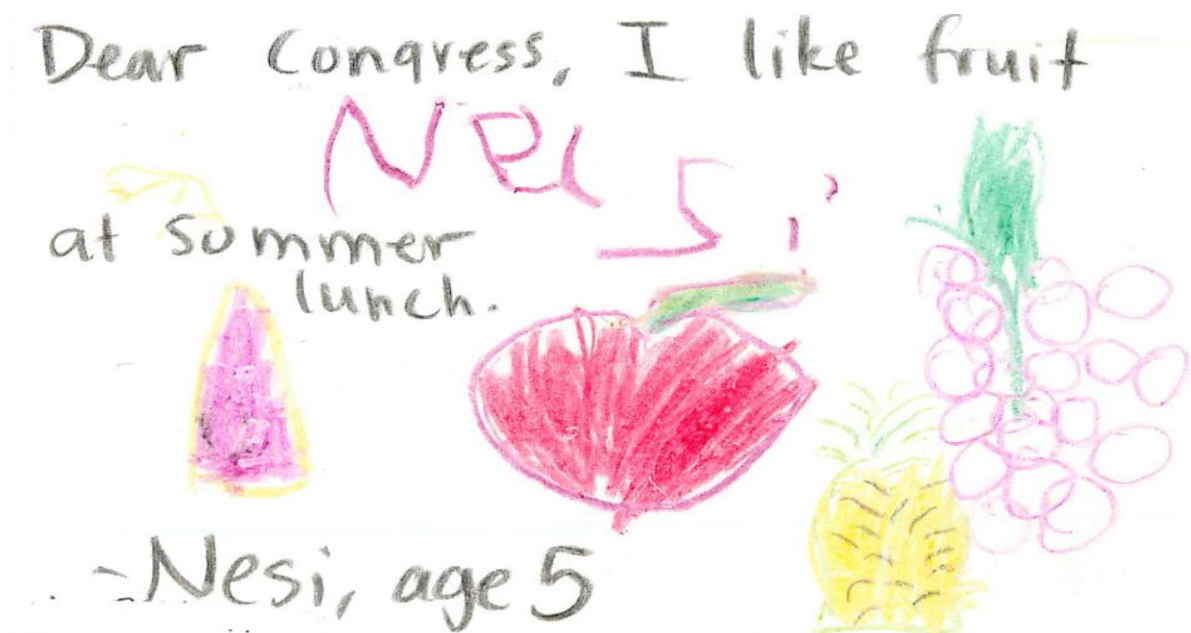 Dear Congress, I like fruit
Nesi
at summer
lunch.
-Nesi, age 5